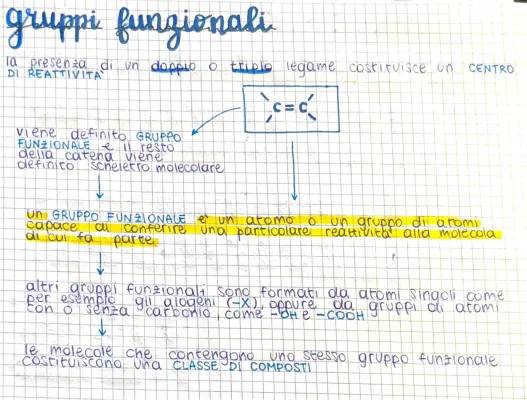 gruppi funzionali
la presenza di un doppio o triplo legame costituisce un CENTRO
DI REATTIVITA'
C=C
viene definito GRUPPO
FUNZIONALE e il resto
della catena viene
definito scheletro molecolare
un GRUPPO FUNZIONALE e' un atomo o un gruppo di atomi
capace di conferire una particolare reattivita' alla molecola
di cui fa parte
altri gruppi funzionali sono formati da atomi singoli come
per esempio gli alogeni (-X), oppure da gruppi di atomi
con o senza carbonio, come -OH e -COOH
le molecole che contengono uno stesso gruppo funzionale
costituiscono una CLASSE DI COMPOSTI